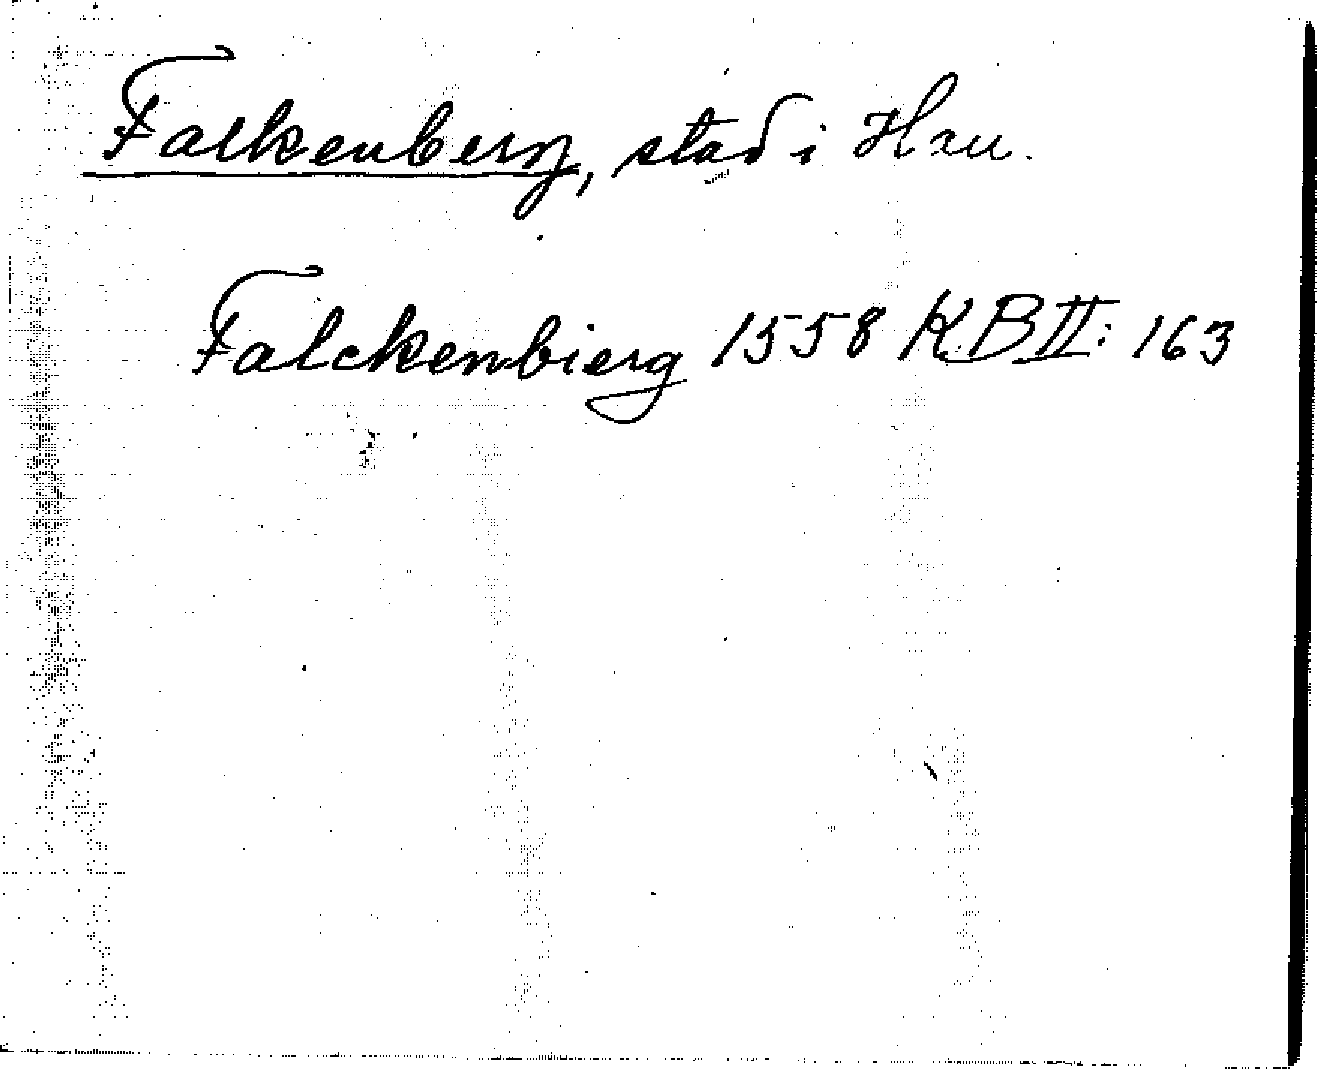 Falkenberg, stad i Hall.
Falckenbierg 1558 KB II: 163